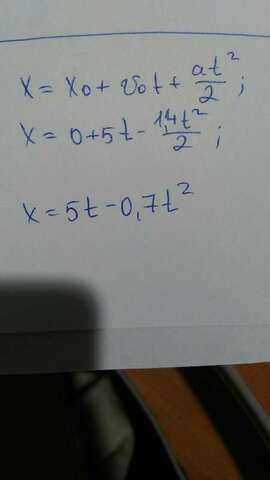 x = x₀ + v₀t + at²/2 ;
x = 0 + 5t - 1,4t²/2 ;
x = 5t - 0,7t²